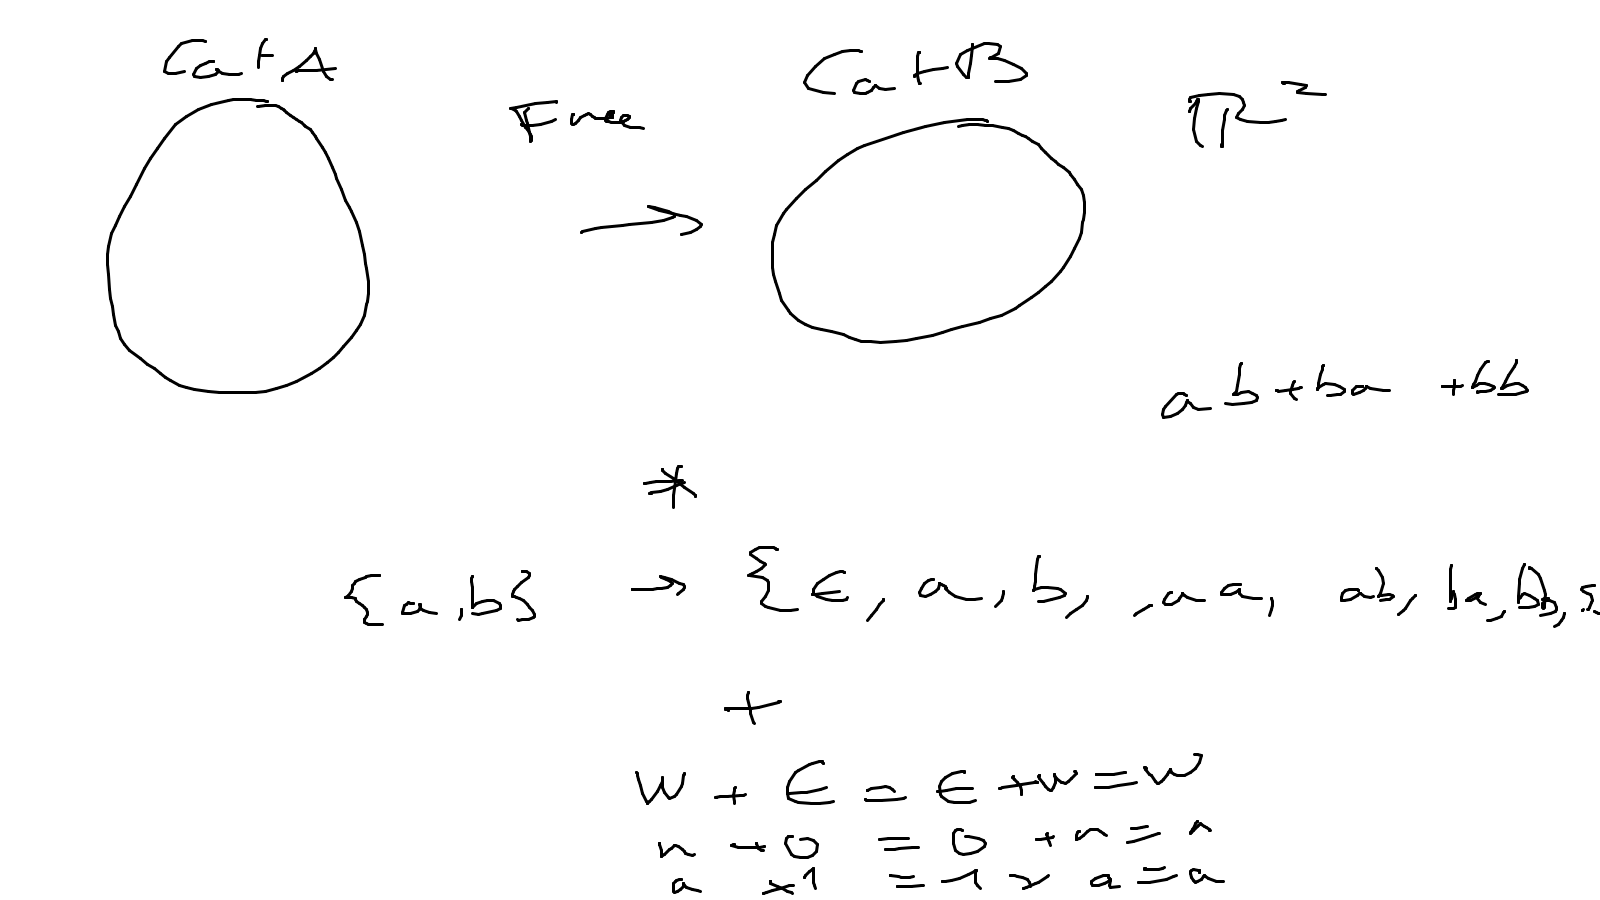 Cat A
Free
Cat B
ℝ²
→
ab + ba + bb
*
{a, b} → {ϵ, a, b, , aa, ab, ba, bb,
+
w + ϵ = ϵ + w = w
n + 0 = 0 + n = n
a × 1 = 1 × a = a